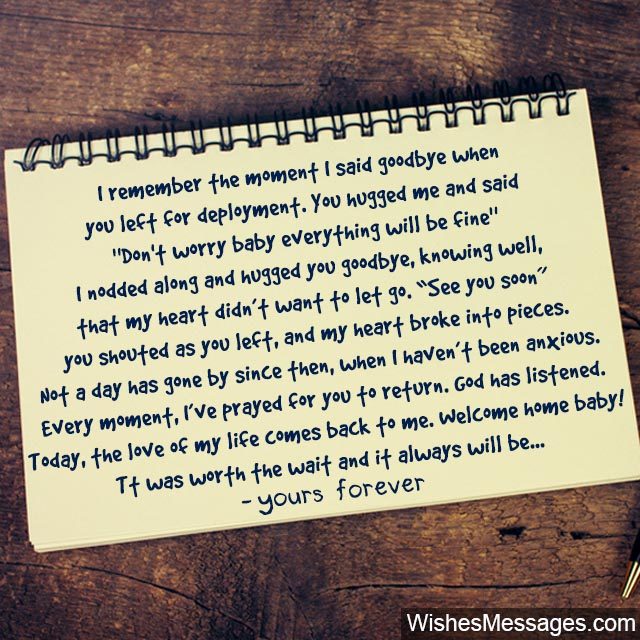 I remember the moment I said goodbye when
you left for deployment. You hugged me and said
"Don't worry baby everything will be fine"
I nodded along and hugged you goodbye, knowing well,
that my heart didn't want to let go. "See you soon"
you shouted as you left, and my heart broke into pieces.
Not a day has gone by since then, when I haven't been anxious.
Every moment, I've prayed for you to return. God has listened.
Today, the love of my life comes back to me. Welcome home baby!
Tt was worth the wait and it always will be...
- yours forever
WishesMessages.com